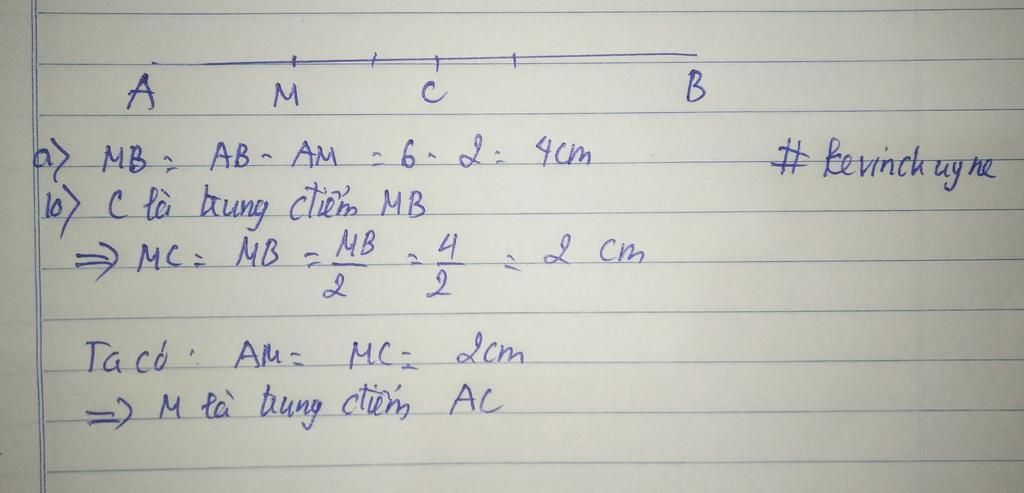 A M C B
a) MB = AB - AM = 6 - 2 = 4cm # kevinchuyne
b) C là trung điểm MB
=> MC = MB = MB/2 = 4/2 = 2 cm
Ta có: AM = MC = 2cm
=> M là trung điểm AC